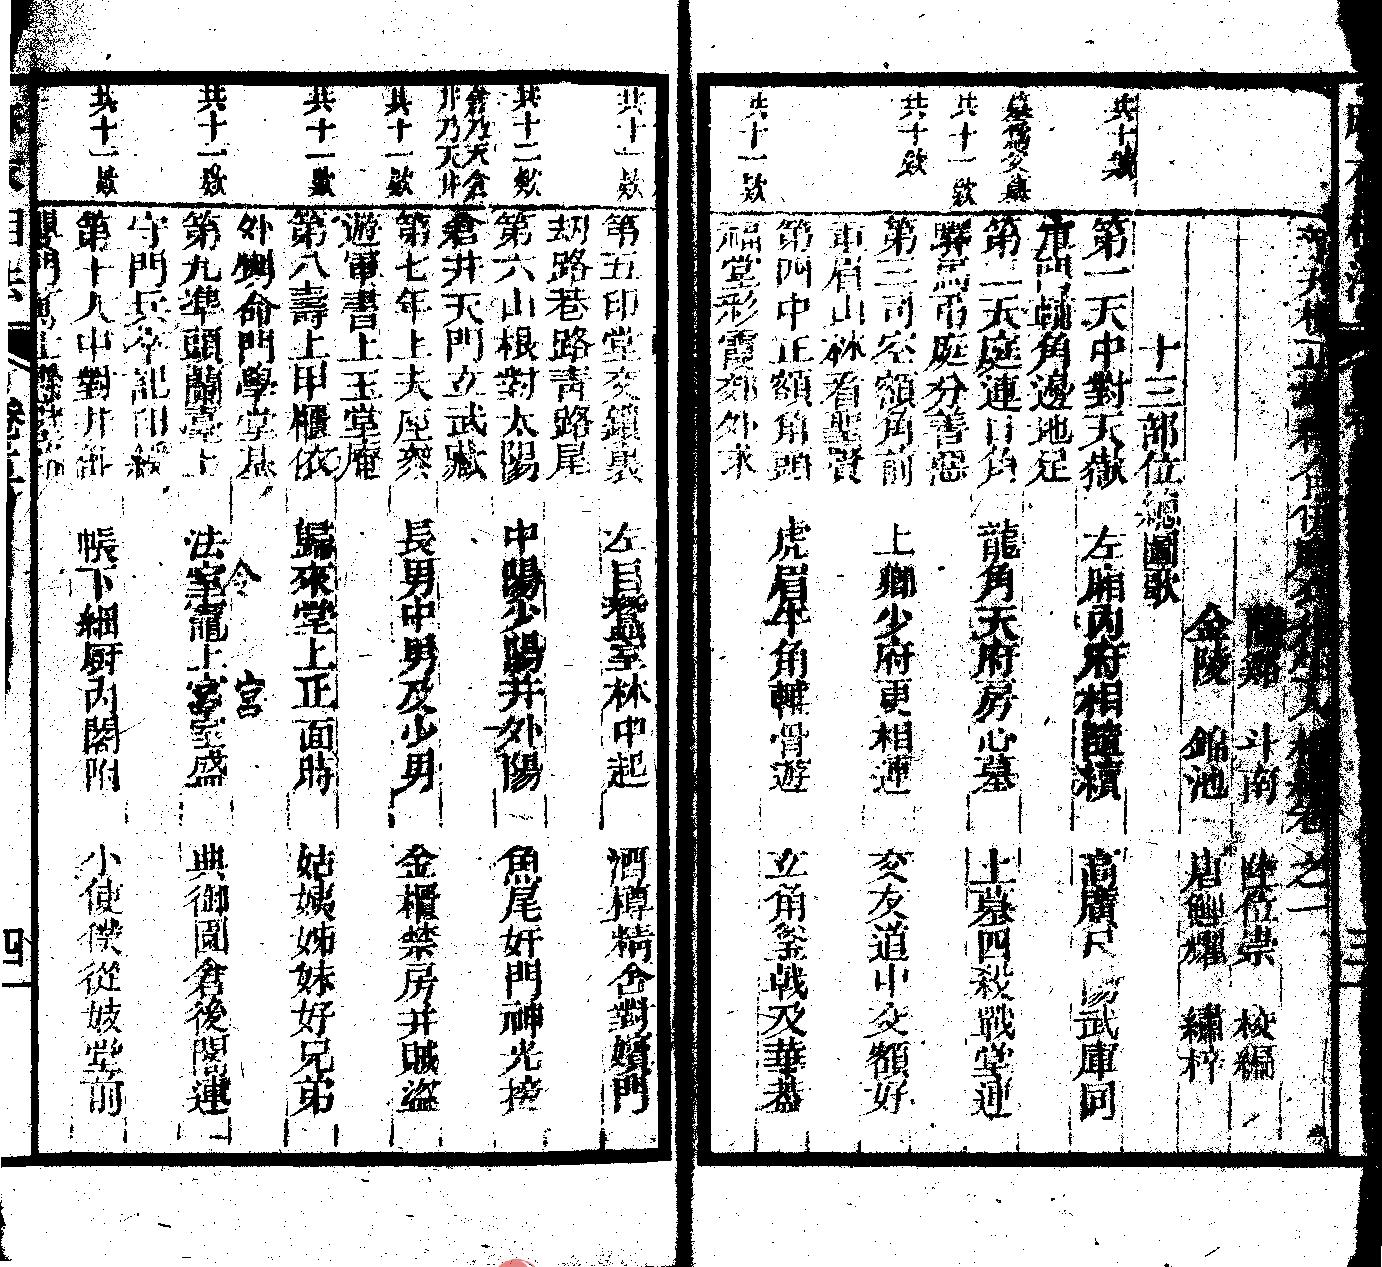 卷之一
斗南 陳位崇 校編
金陵 錦池 唐鯉耀 繡梓
十三部位總圖歌
共十款
第一天中對天嶽 左廂內府相隨續 高廣尺陽武庫同
軍門輔角邊地足
共十一款
第二天庭連日角 龍角天府房心墓 上墓四殺戰堂連
驛馬吊庭分善惡
共十款
第三司空額角前 上卿少府更相連 交友道中交額好
重眉山林看聖賢
共十一款
第四中正額角頭 虎眉牛角輔骨遊 立角斧戟及華蓋
福堂彩霞郊外求
共十一款
第五印堂交鎖裏 左目蠶室林中起 酒樽精舍對嬪門
劫路巷路青路尾
共十二款
第六山根對太陽 中陽少陽并外陽 魚尾奸門神光接
倉井天門立武藏
倉乃天倉
井乃天井
共十一款
第七年上夫座參 長男中男及少男 金櫃禁房并賊盜
遊軍書上玉堂庵
共十一款
第八壽上甲櫃依 歸來堂上正面時 姑姨姊妹好兄弟
外甥命門學堂基
共十一款
第九準頭蘭臺上 法令竈上宮室盛 典御園倉後閣連
守門兵卒記印綬
共十一款
第十人中對井部 帳下細厨內閣附 小使僕從妓堂前